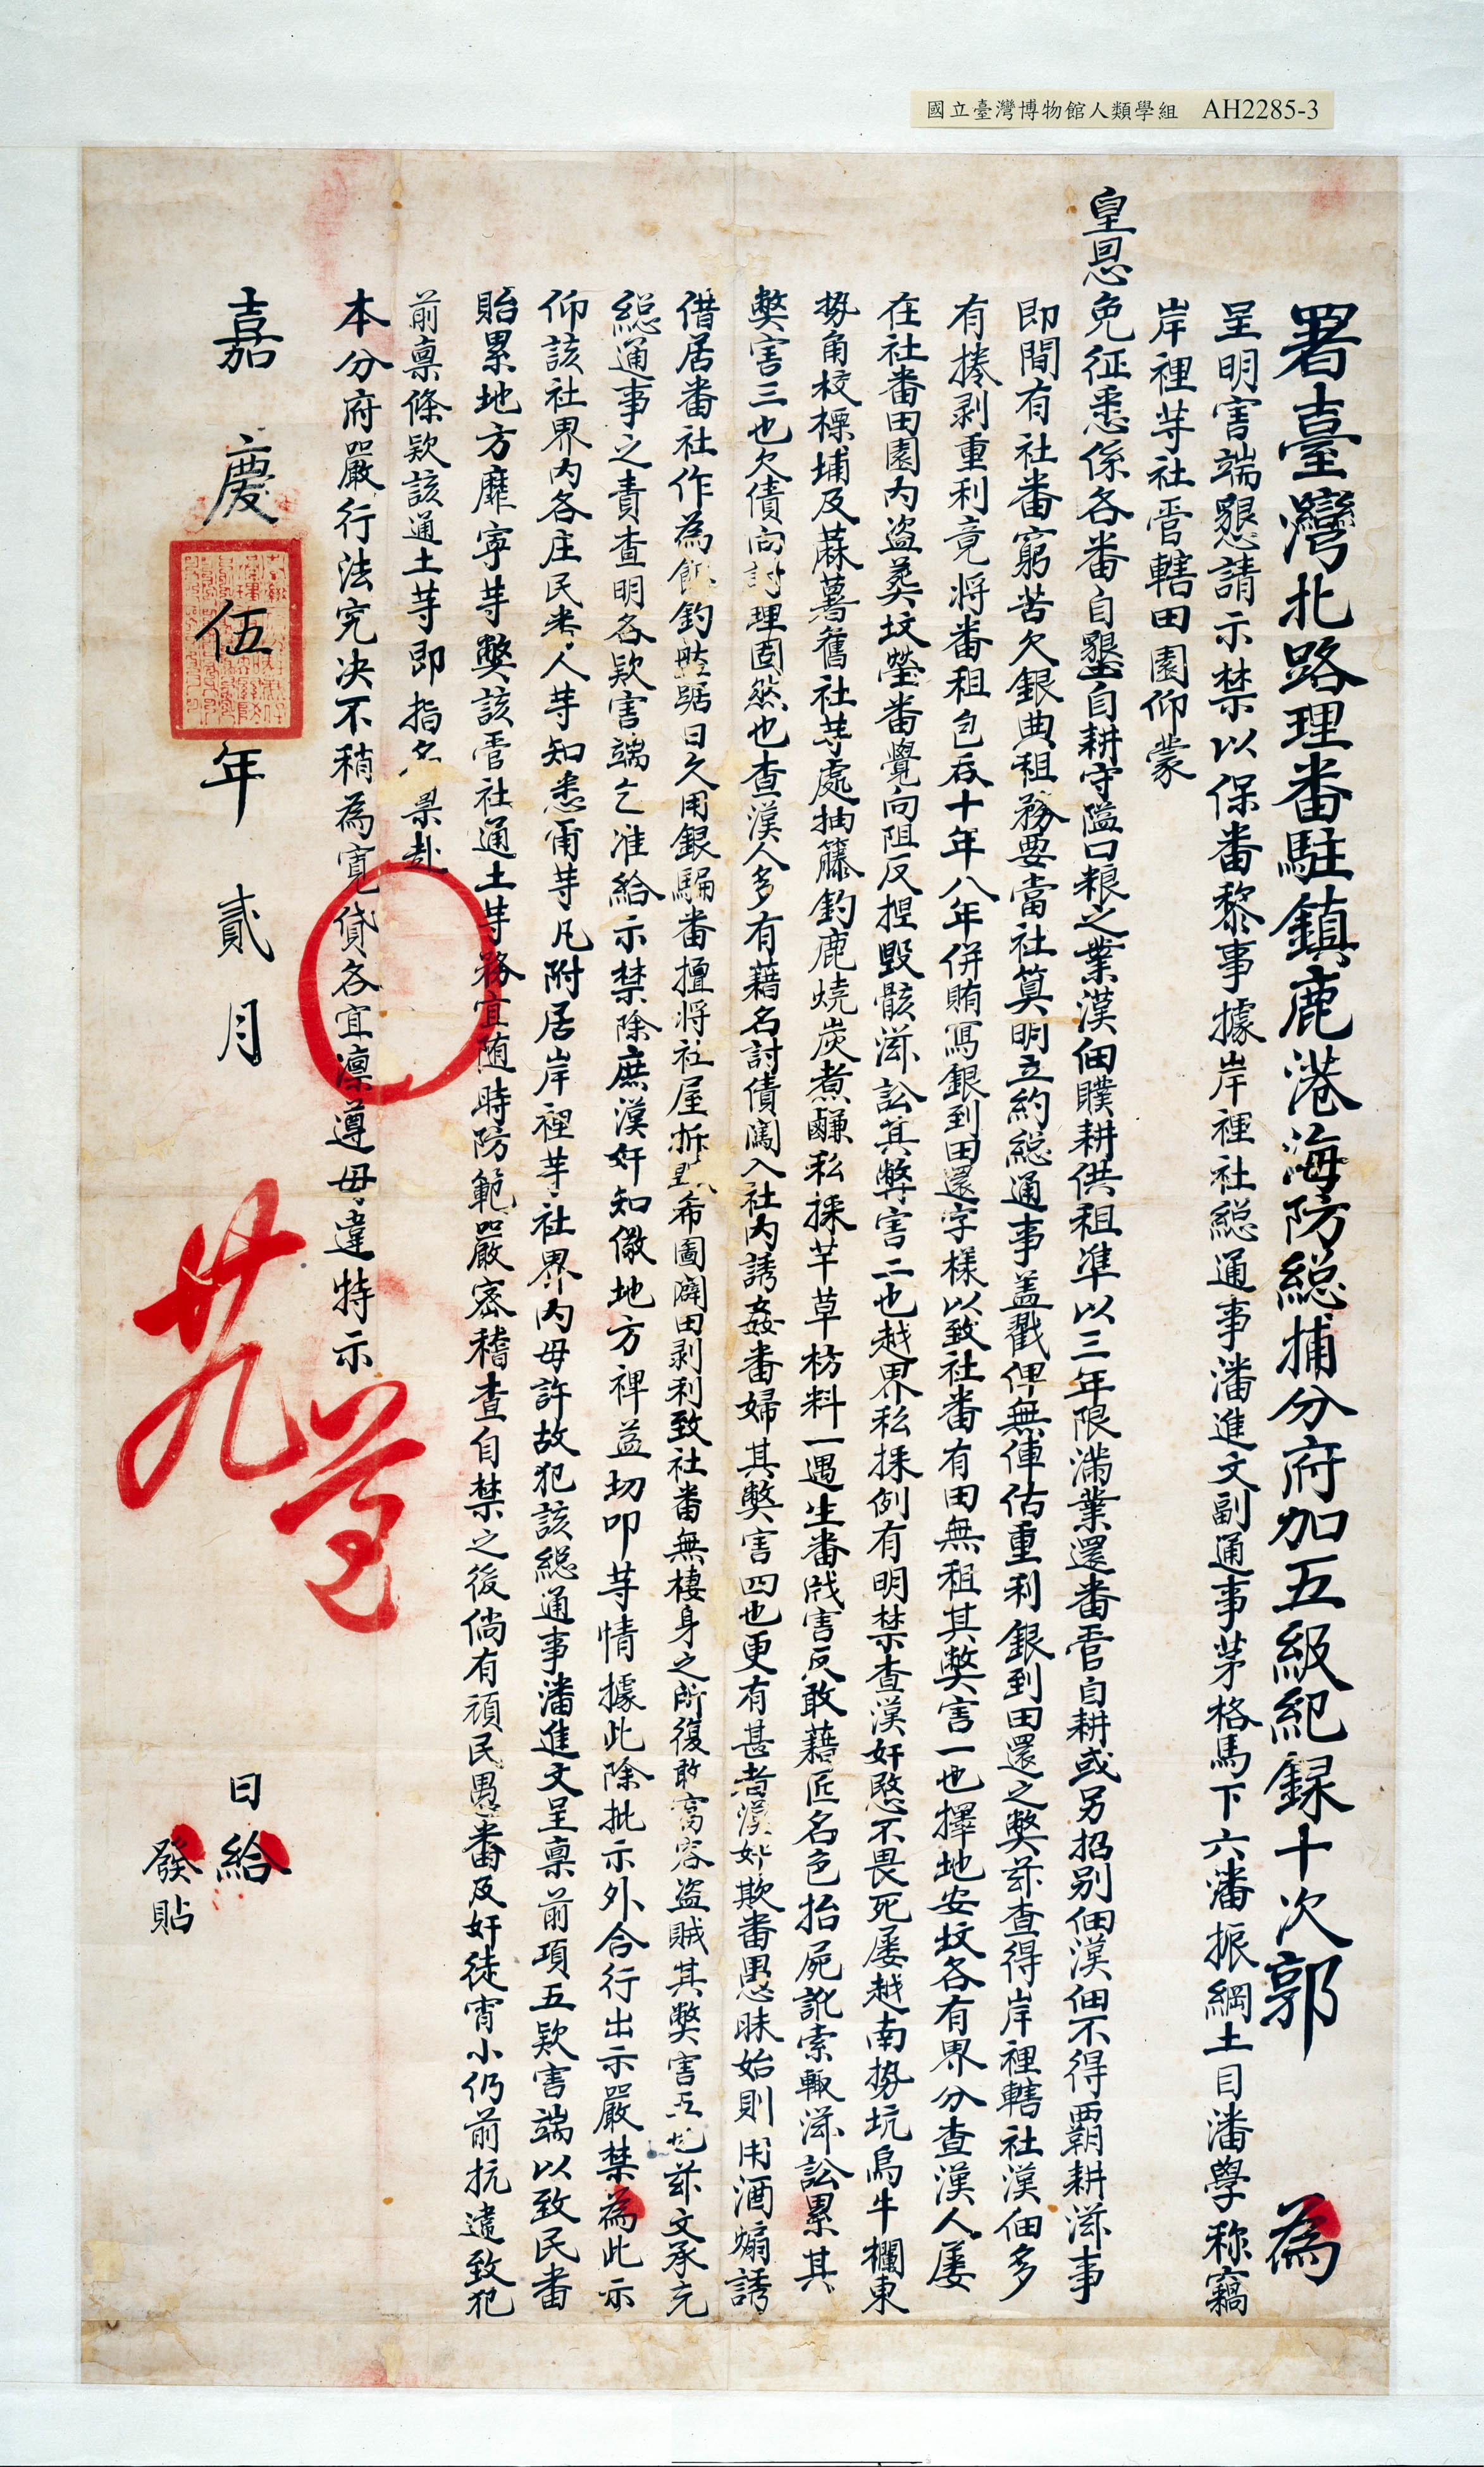 國立臺灣博物館人類學組 AH2285-3
署臺灣北路理番駐鎮鹿港海防総捕分府加五級紀録十次郭 為
呈明害端懇請示禁以保番黎事據岸裡社総通事潘進文副通事茅格馬下六潘振綱土目潘學称竊
岸裡等社管轄田園仰蒙
皇恩免征悉係各番自墾自耕守隘口粮之業漢佃贌耕供租凖以三年限滿業還番管自耕或另招别佃漢佃不得覇耕滋事
即間有社番窮苦欠銀典租務要當社算明立約総通事盖戳俾無俥估重利銀到田還之弊茲查得岸裡轄社漢佃多
有捲剥重利竟将番租包吞十年八年併賄寫銀到田還字樣以致社番有田無租其弊害一也擇地安坟各有界分查漢人屡
在社番田園内盗葬坟塋番覺向阻反捏毀骸滋訟其弊害二也越界私採例有明禁查漢奸愍不畏死屡越南勢坑烏牛欄東
勢角校標埔及蔴薯舊社等處抽籐釣鹿燒炭煮鹻私採芊草枋料一遇生番戕害反敢藉匠名色抬屍訛索輙滋訟累其
弊害三也欠債向討理固然也查漢人多有藉名討債闖入社内誘姦番婦其弊害四也更有甚者漢奸欺番愚昧始則用酒煽誘
借居番社作為餌釣盤踞日久用銀騙番擅将社屋拆 希圖闢田剥利致社番無棲身之所復敢窩容盗賊其弊害五也茲文承充
総通事之責查明各欵害端乞准給示禁除庶漢奸知儆地方裨益切叩等情據此除批示外合行出示嚴禁為此示
仰該社界内各庄民番人等知悉甭等凡附居岸裡等社界内毋許故犯該総通事潘進文呈禀前項五欵害端以致民番
貽累地方靡寧等弊該管社通土等務宜随時防範嚴密稽查自禁之後倘有頑民愚番及奸徒宵小仍前抗違致犯
前禀條欵該通土等即指名禀赴
本分府嚴行法究决不稍為寛貸各宜凛遵毋違特示
遵
嘉慶伍年貳月 廿九 日給
發貼